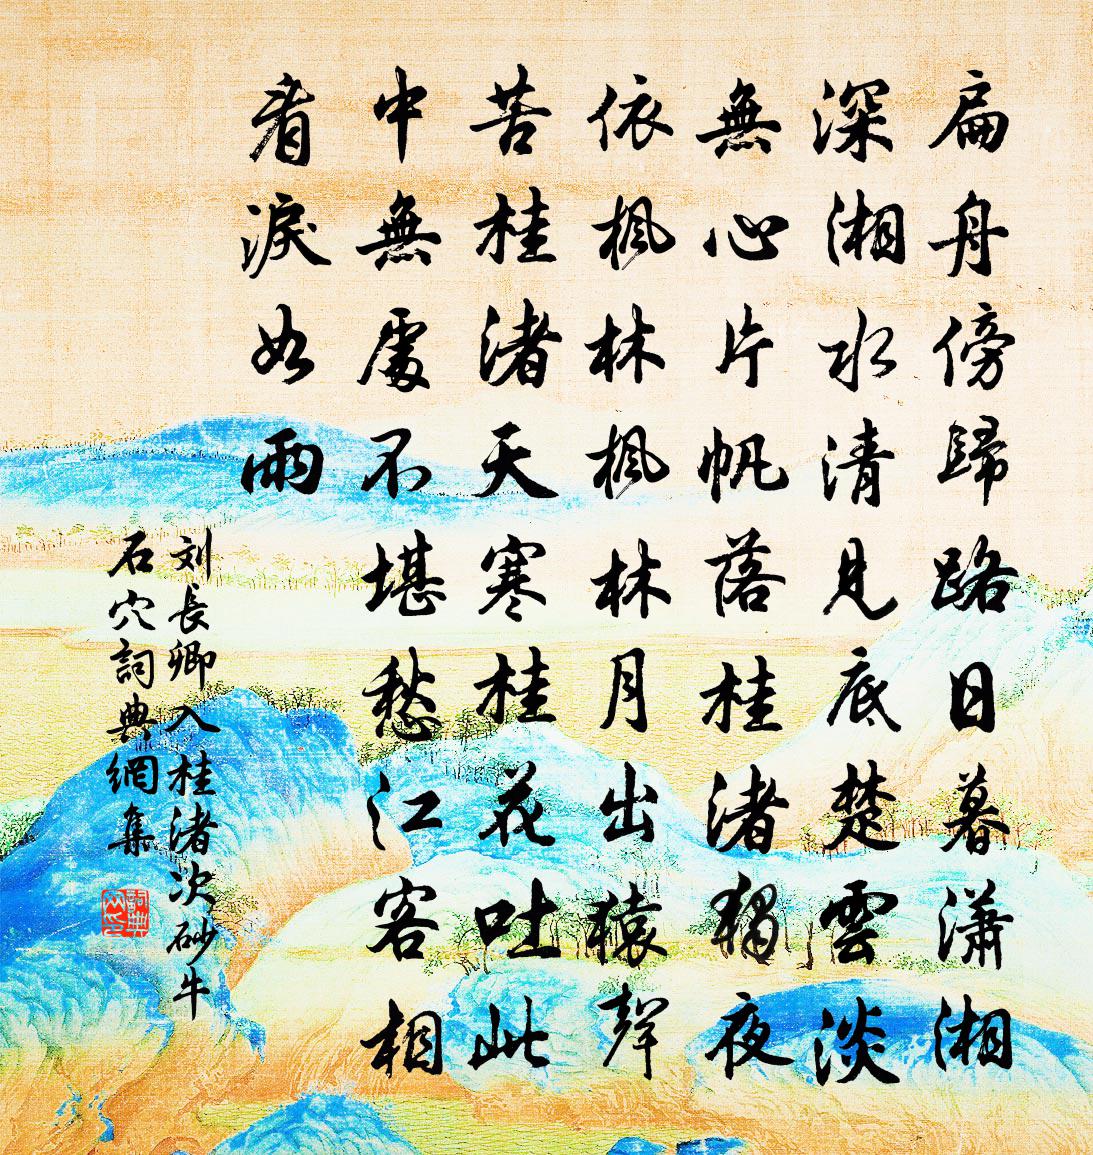 扁舟傍歸路日暮瀟湘
深湘水清見底楚雲淡
無心片帆落桂渚獨夜
依楓林楓林月出猿聲
苦桂渚天寒桂花吐此
中無處不堪愁江客相
看淚如雨
刘長卿入桂渚次砂牛
石穴詞典網集